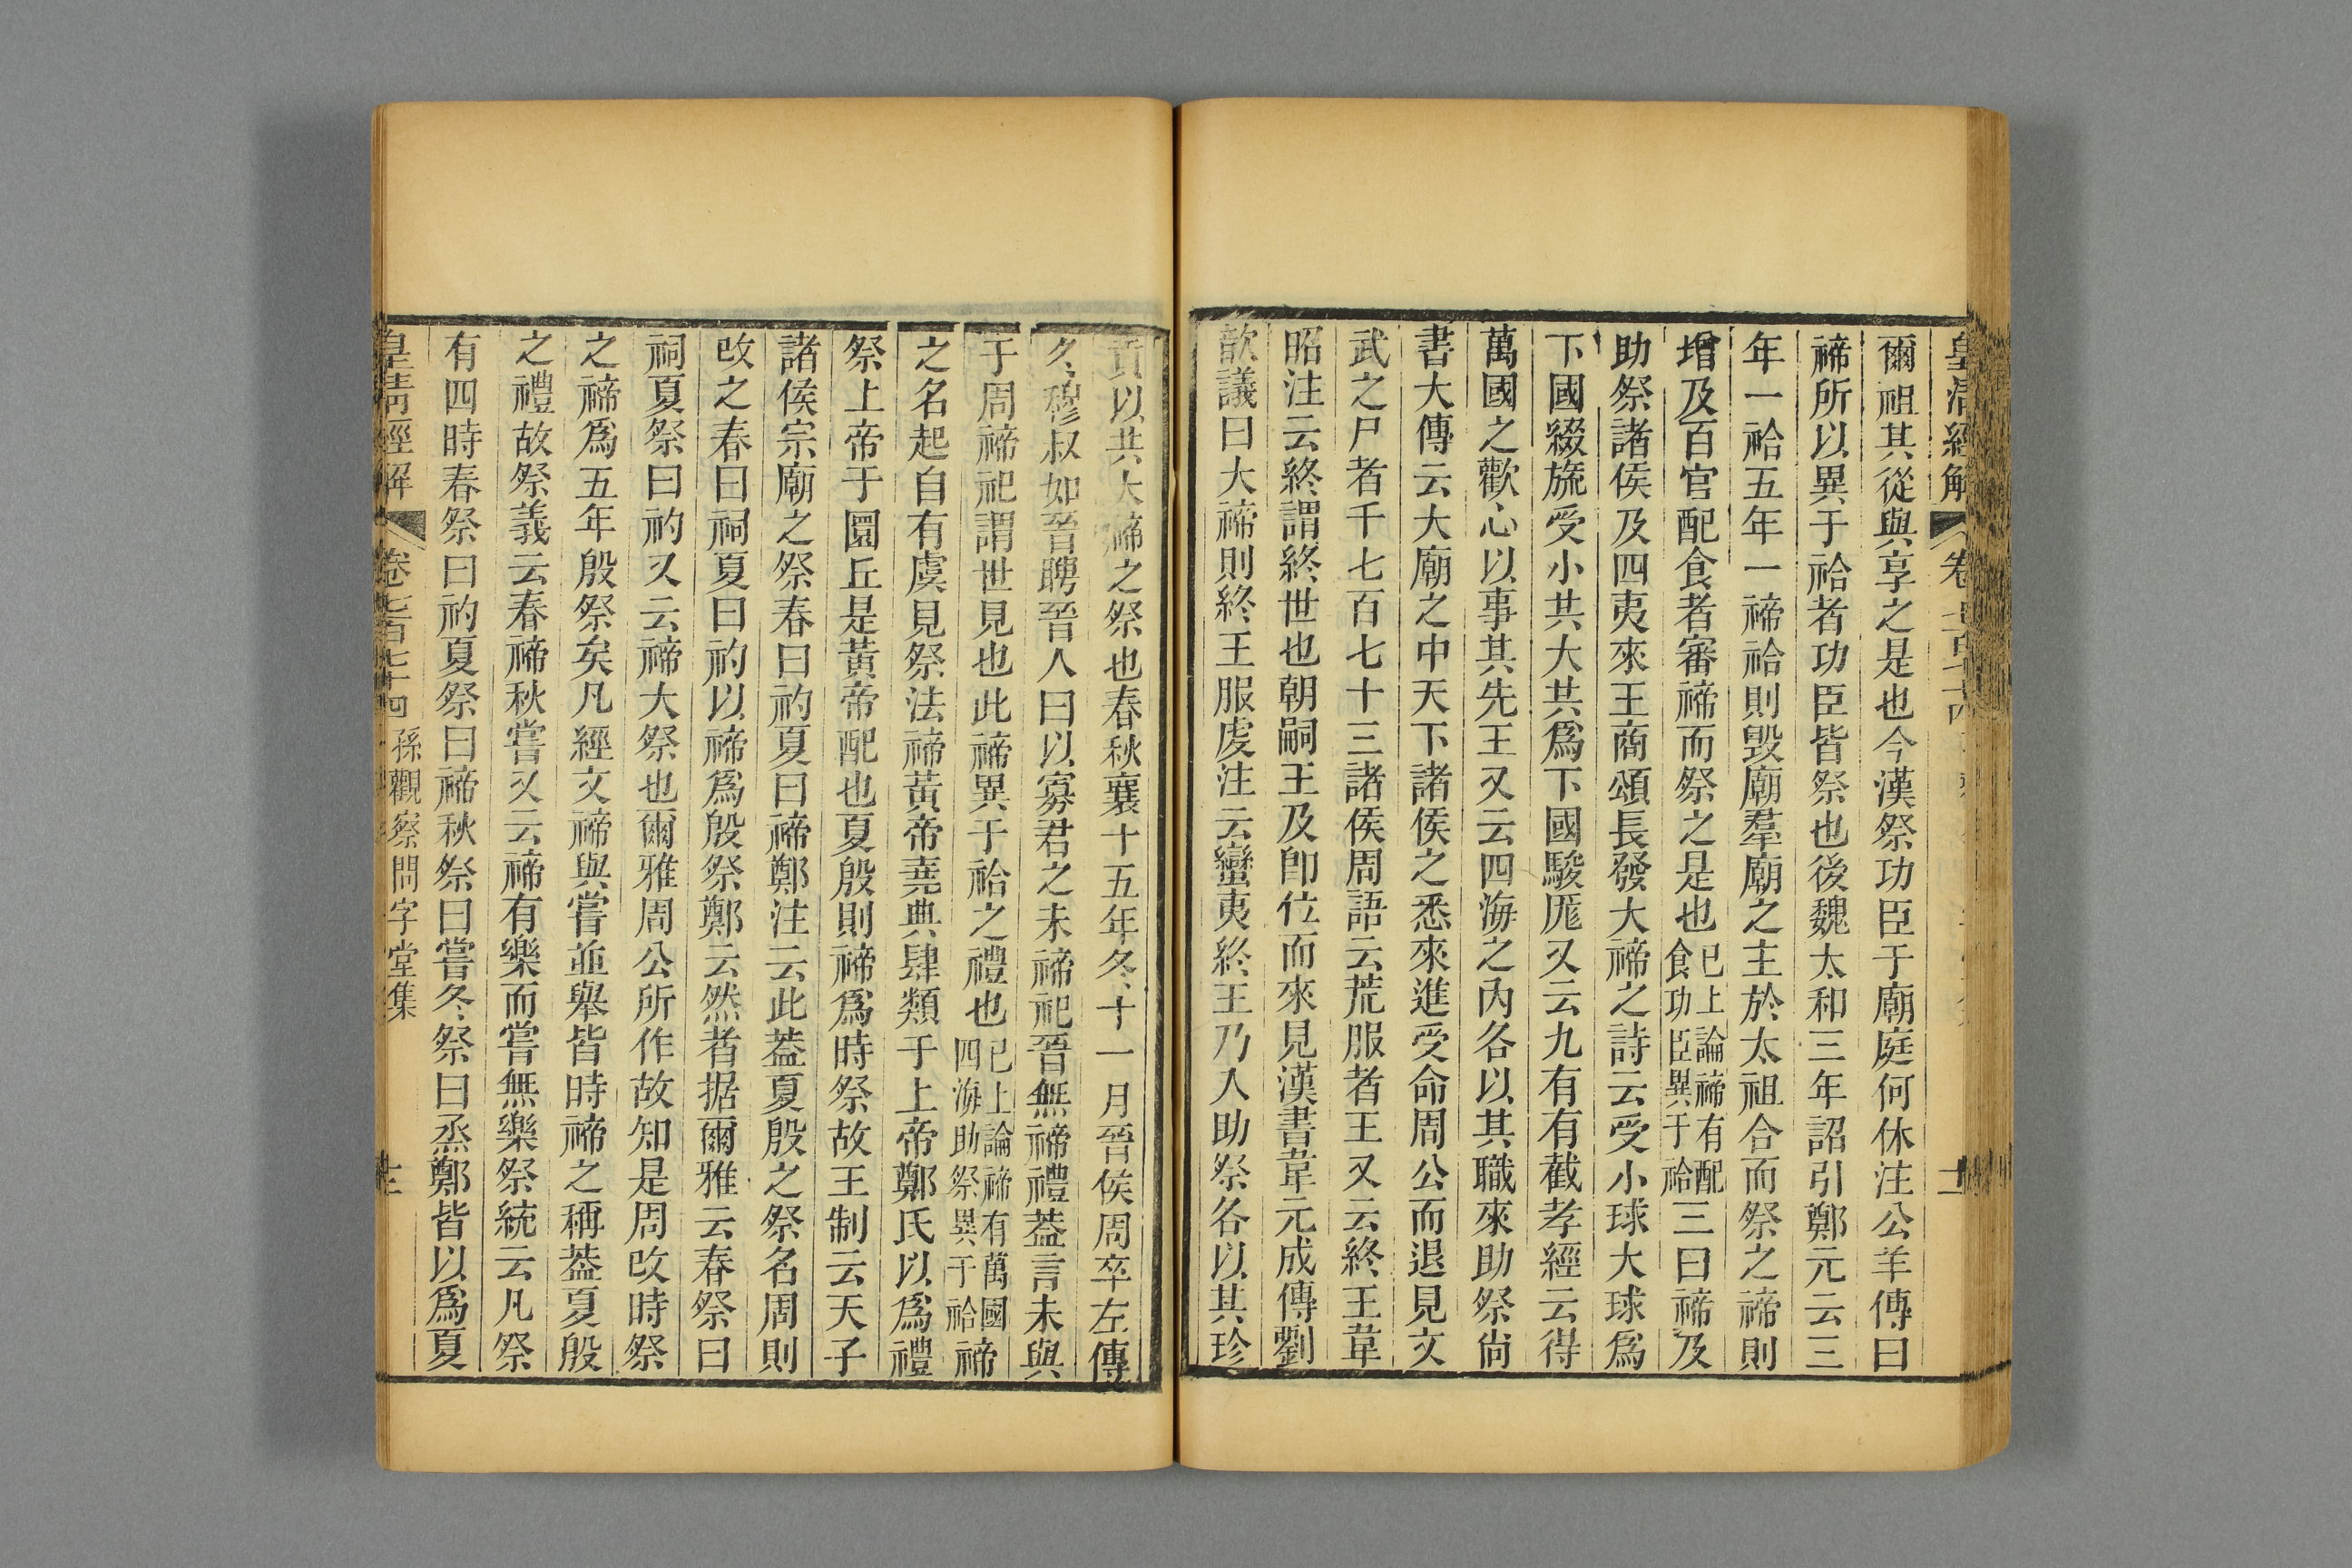 皇清經解 卷七百七十四 十二
爾祖其從與享之是也今漢祭功臣于廟庭何休注公羊傳曰
禘所以異于祫者功臣皆祭也後魏太和三年詔引鄭元云三
年一祫五年一禘祫則毀廟羣廟之主於太祖合而祭之禘則
增及百官配食者審禘而祭之是也已上論禘有配食功臣異于祫三曰禘及
助祭諸侯及四夷來王商頌長發大禘之詩云受小球大球爲
下國綴旒受小共大共爲下國駿厖又云九有有截孝經云得
萬國之歡心以事其先王又云四海之內各以其職來助祭尙
書大傳云大廟之中天下諸侯之悉來進受命周公而退見文
武之尸者千七百七十三諸侯周語云荒服者王又云終王韋
昭注云終謂終世也朝嗣王及卽位而來見漢書韋元成傳劉
歆議曰大禘則終王服虔注云蠻夷終王乃入助祭各以其珍
貢以共大禘之祭也春秋襄十五年冬十一月晉侯周卒左傳
冬穆叔如晉聘晉人曰以寡君之未禘祀晉無禘禮葢言未與
于周禘祀謂世見也此禘異于祫之禮也已上論禘有萬國四海助祭異于祫禘
之名起自有虞見祭法禘黃帝堯典肆類于上帝鄭氏以爲禮
祭上帝于圜丘是黃帝配也夏殷則禘爲時祭故王制云天子
諸侯宗廟之祭春曰礿夏曰禘鄭注云此葢夏殷之祭名周則
改之春曰祠夏曰礿以禘爲殷祭鄭云然者据爾雅云春祭曰
祠夏祭曰礿又云禘大祭也爾雅周公所作故知是周改時祭
之禘爲五年殷祭矣凡經文禘與嘗並舉皆時禘之稱葢夏殷
之禮故祭義云春禘秋嘗又云禘有樂而嘗無樂祭統云凡祭
有四時春祭曰礿夏祭曰禘秋祭曰嘗冬祭曰烝鄭皆以爲夏
皇清經解 卷七百七十四 孫觀察問字堂集 十三